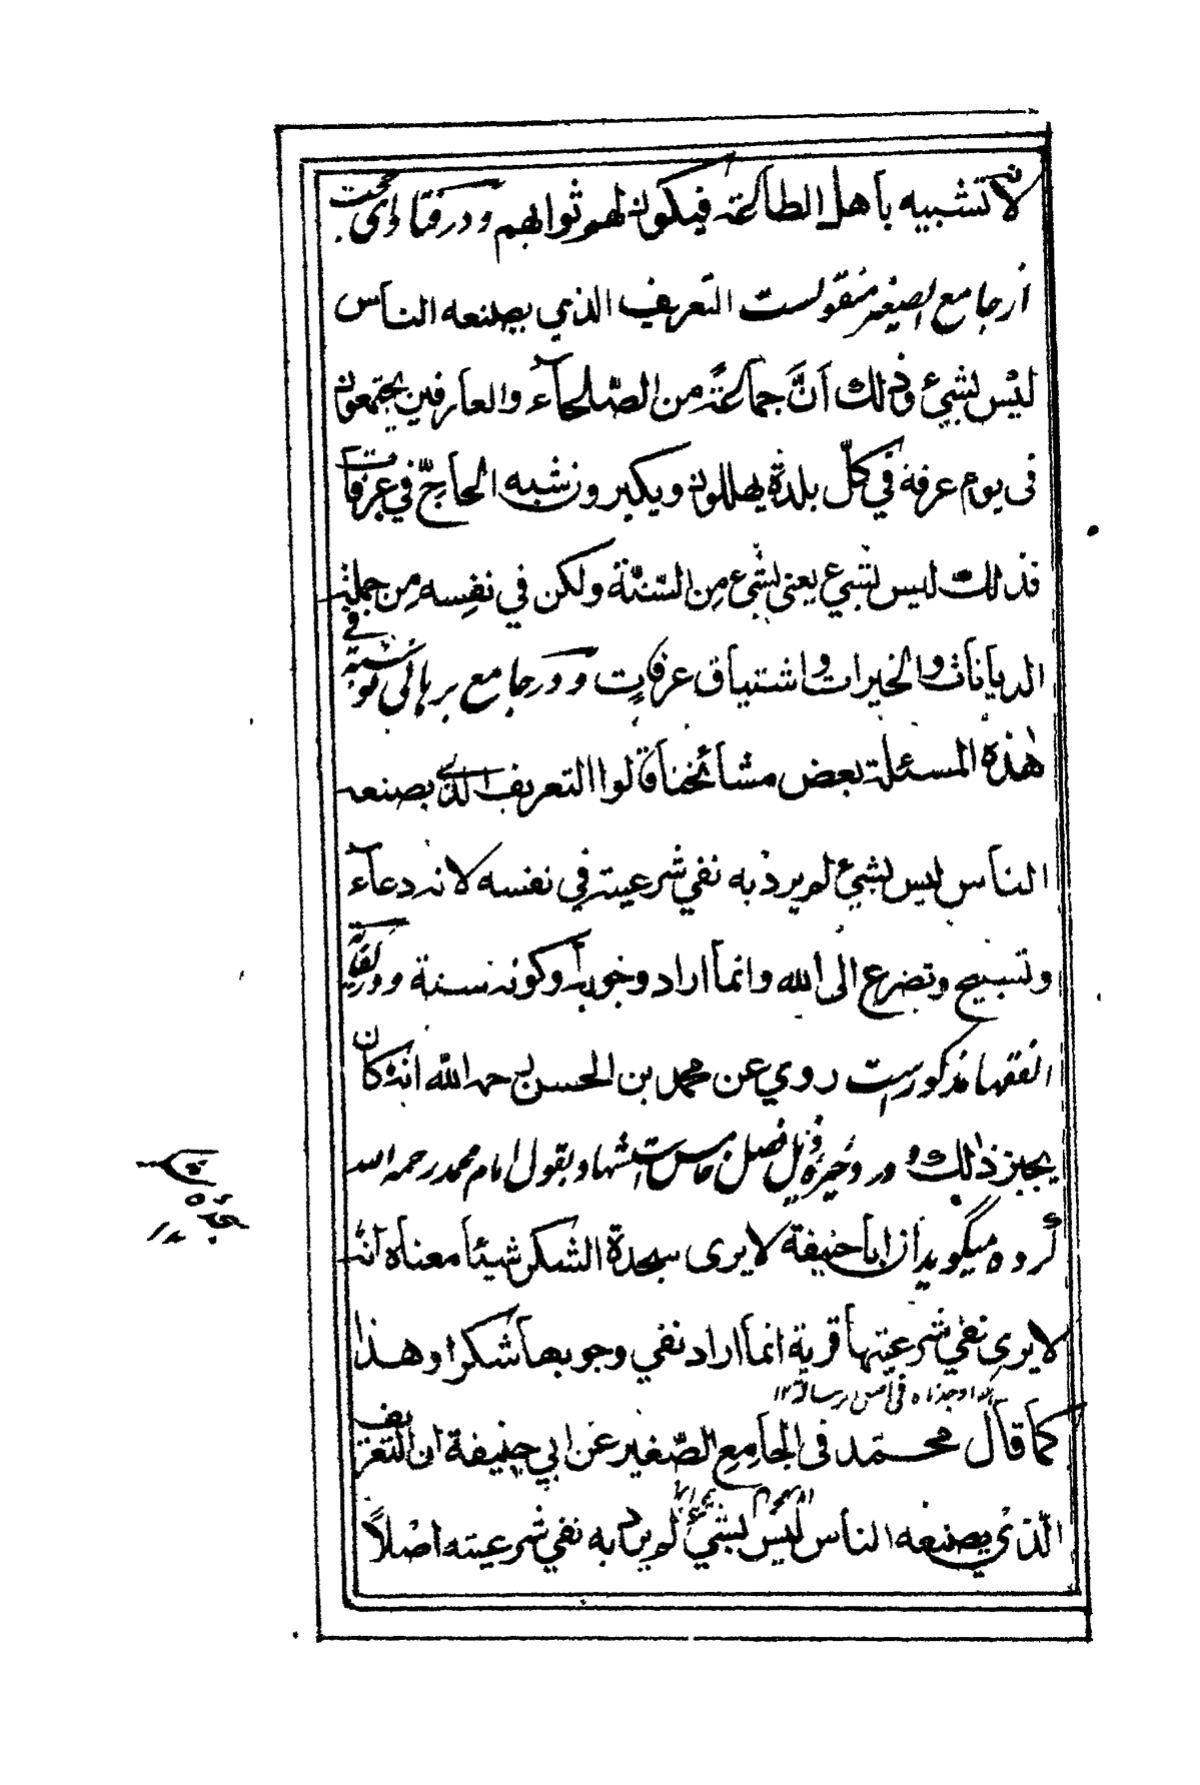 لانه تشبيه بأهل الطاعة فيكون لهم ثوابهم و در فتاوای حجت
از جامع الصغير منقولست التعريف الذي يصنعه الناس
ليس بشيئ وذلك أنّ جماعةً من الصّلحاء والعارفين يجتمعون
فى يوم عرفة في كلّ بلدة يهللون ويكبرون شبه الحاجّ في عرفات
فذلك ليس بشيئ يعنى بشئ من السّنّة ولكن في نفسه من جملة
الديانات والخيرات واشتياق عرفات و در جامع برهانى فى
هذه المسئلة بعض مشائخنا قالوا التعريف الذي يصنعه
الناس ليس بشيئ لم يرد به نفي شرعيته في نفسه لانه دعاء
وتسبيح وتضرع الى الله وانما اراد وجوبه أو كونه سنة و در كفاية
الفقها مذكورست روي عن محمد بن الحسن رحمه الله انه كان
يجيز ذلك و در ذخيره ذيل فصل خامس استشهاد بقول امام محمد رحمه الله
كروه ميگويد أن ابا حنيفة لا يرى سجدة الشكر شيئا معناه انه
لا يرى نفي شرعيتها قربة انما اراد نفي وجوبها شكرا وهذا
كما قال محمّد فى الجامع الصّغير عن ابي حنيفة ان التعريف
الّذي يصنعه الناس ليس بشيئ لم يرد به نفي شرعيته اصلاً
سجده